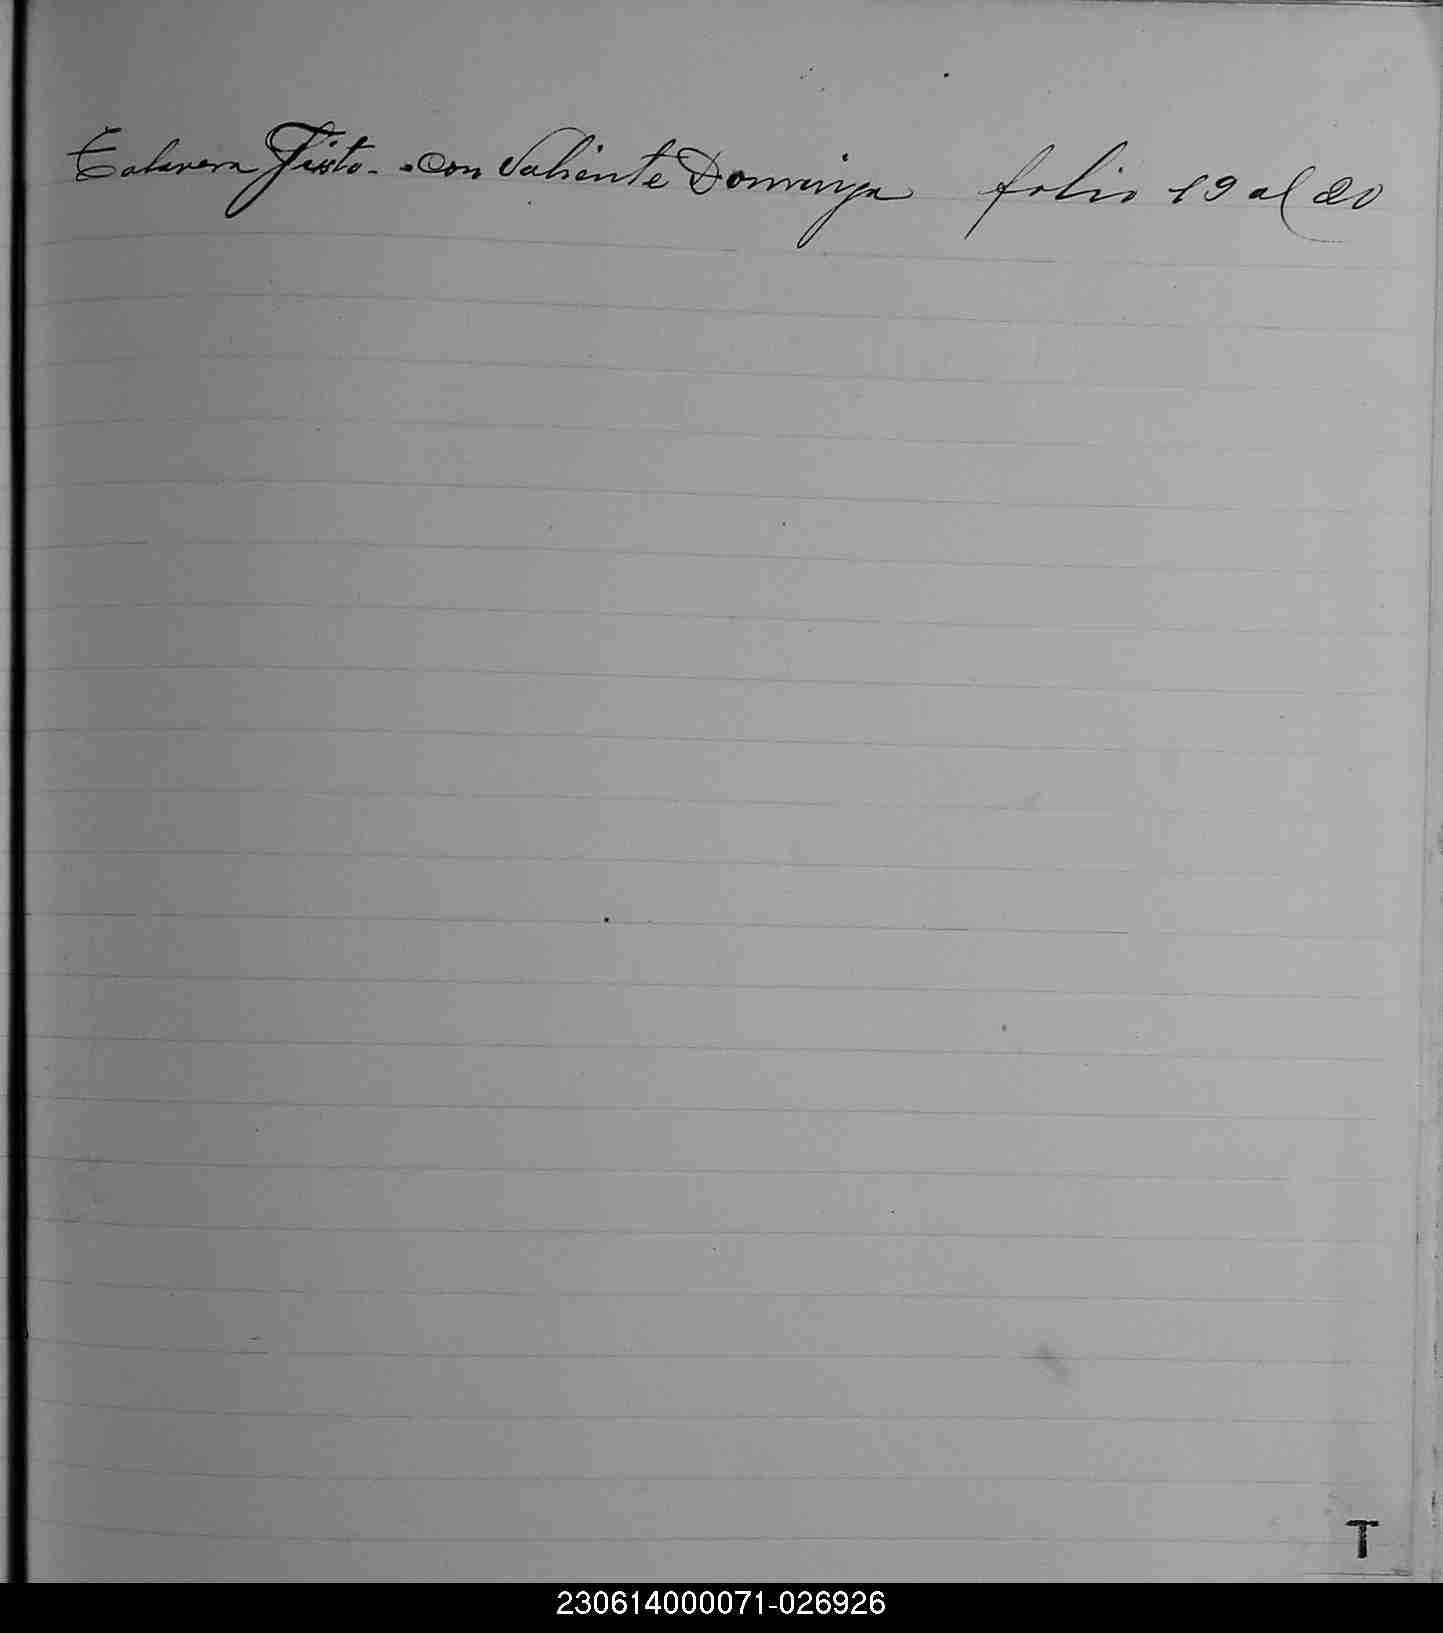 Talavera Fisto - con Valiente Dominga folio 19 al 20
T
230614000071-026926